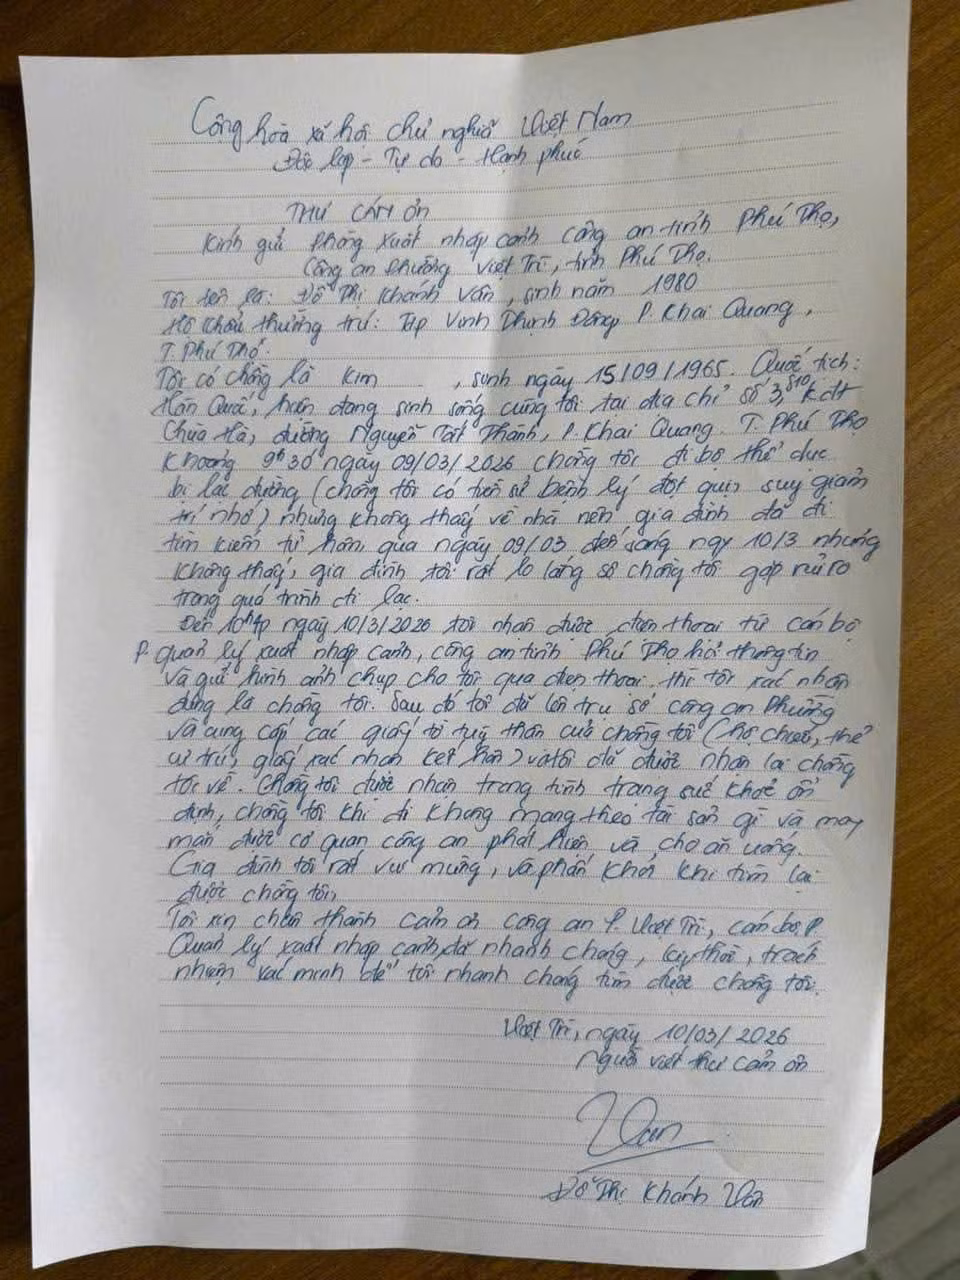 Cộng hoà xã hội chủ nghĩa Việt Nam
Độc lập - Tự do - Hạnh phúc
THƯ CẢM ƠN
Kính gửi phòng xuất nhập cảnh công an tỉnh Phú Thọ,
Công an phường Việt Trì, tỉnh Phú Thọ.
Tôi tên là: Đỗ Thị Khánh Vân, sinh năm 1980
Hộ khẩu thường trú: Tập Vinh Thịnh Đông P. Khai Quang,
T. Phú Thọ.
Tôi có chồng là Kim , sinh ngày 15/09/1965. Quốc tịch:
Hàn Quốc, hiện đang sinh sống cùng tôi tại địa chỉ số 3, S10, Kdt
Chùa Hà, đường Nguyễn Tất Thành, P. Khai Quang. T. Phú Thọ
Khoảng 9h30 ngày 09/03/2026 chồng tôi đi bộ thể dục
bị lạc đường (chồng tôi có tiền sử bệnh lý đột quị, suy giảm
trí nhớ) nhưng không thấy về nhà nên gia đình đã đi
tìm kiếm từ hôm qua ngày 09/03 đến sáng ngy 10/3 nhưng
không thấy, gia đình tôi rất lo lắng sợ chồng tôi gặp rủi ro
trong quá trình đi lạc.
Đến 10h ngày 10/3/2026 tôi nhận được điện thoại từ cán bộ
P. quản lý xuất nhập cảnh, công an tỉnh Phú Thọ hỏi thông tin
và gửi hình ảnh chụp cho tôi qua điện thoại, thì tôi xác nhận
đúng là chồng tôi. Sau đó tôi đã lên trụ sở công an phường
và cung cấp các giấy tờ tuỳ thân của chồng tôi (hộ chiếu, thẻ
cư trú, giấy xác nhận kết hôn) và tôi đã được nhận lại chồng
tôi về. Chồng tôi được nhận trong tình trạng sức khoẻ ổn
định, chồng tôi khi đi không mang theo tài sản gì và may
mắn được cơ quan công an phát hiện và cho ăn uống.
Gia đình tôi rất vui mừng, và phấn khởi khi tìm lại
được chồng tôi,
Tôi xin chân thành cảm ơn công an P. Việt Trì, cán bộ P.
Quản lý xuất nhập cảnh đã nhanh chóng, kịp thời, trách
nhiệm xác minh để tôi nhanh chóng tìm được chồng tôi.
Việt Trì, ngày 10/03/2026
Người viết thư cảm ơn
Vân
Đỗ Thị Khánh Vân